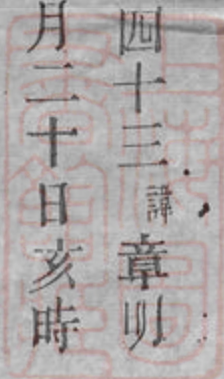 四十三諱章明
月二十日亥時